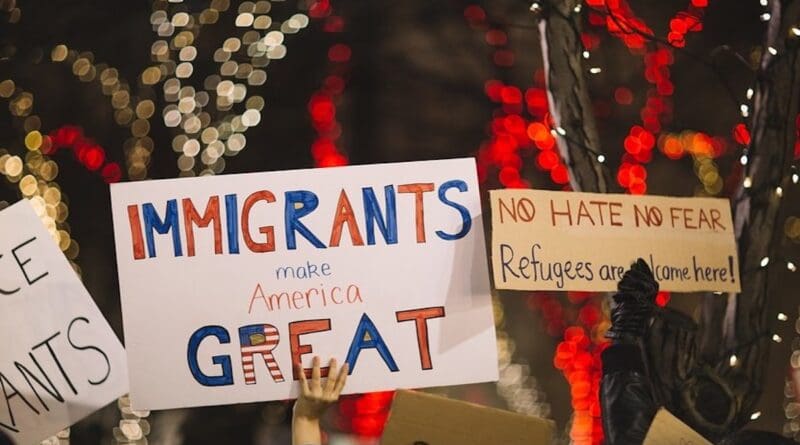 IMMIGRANTS
make
America
GREAT
NO HATE NO FEAR
Refugees are here!